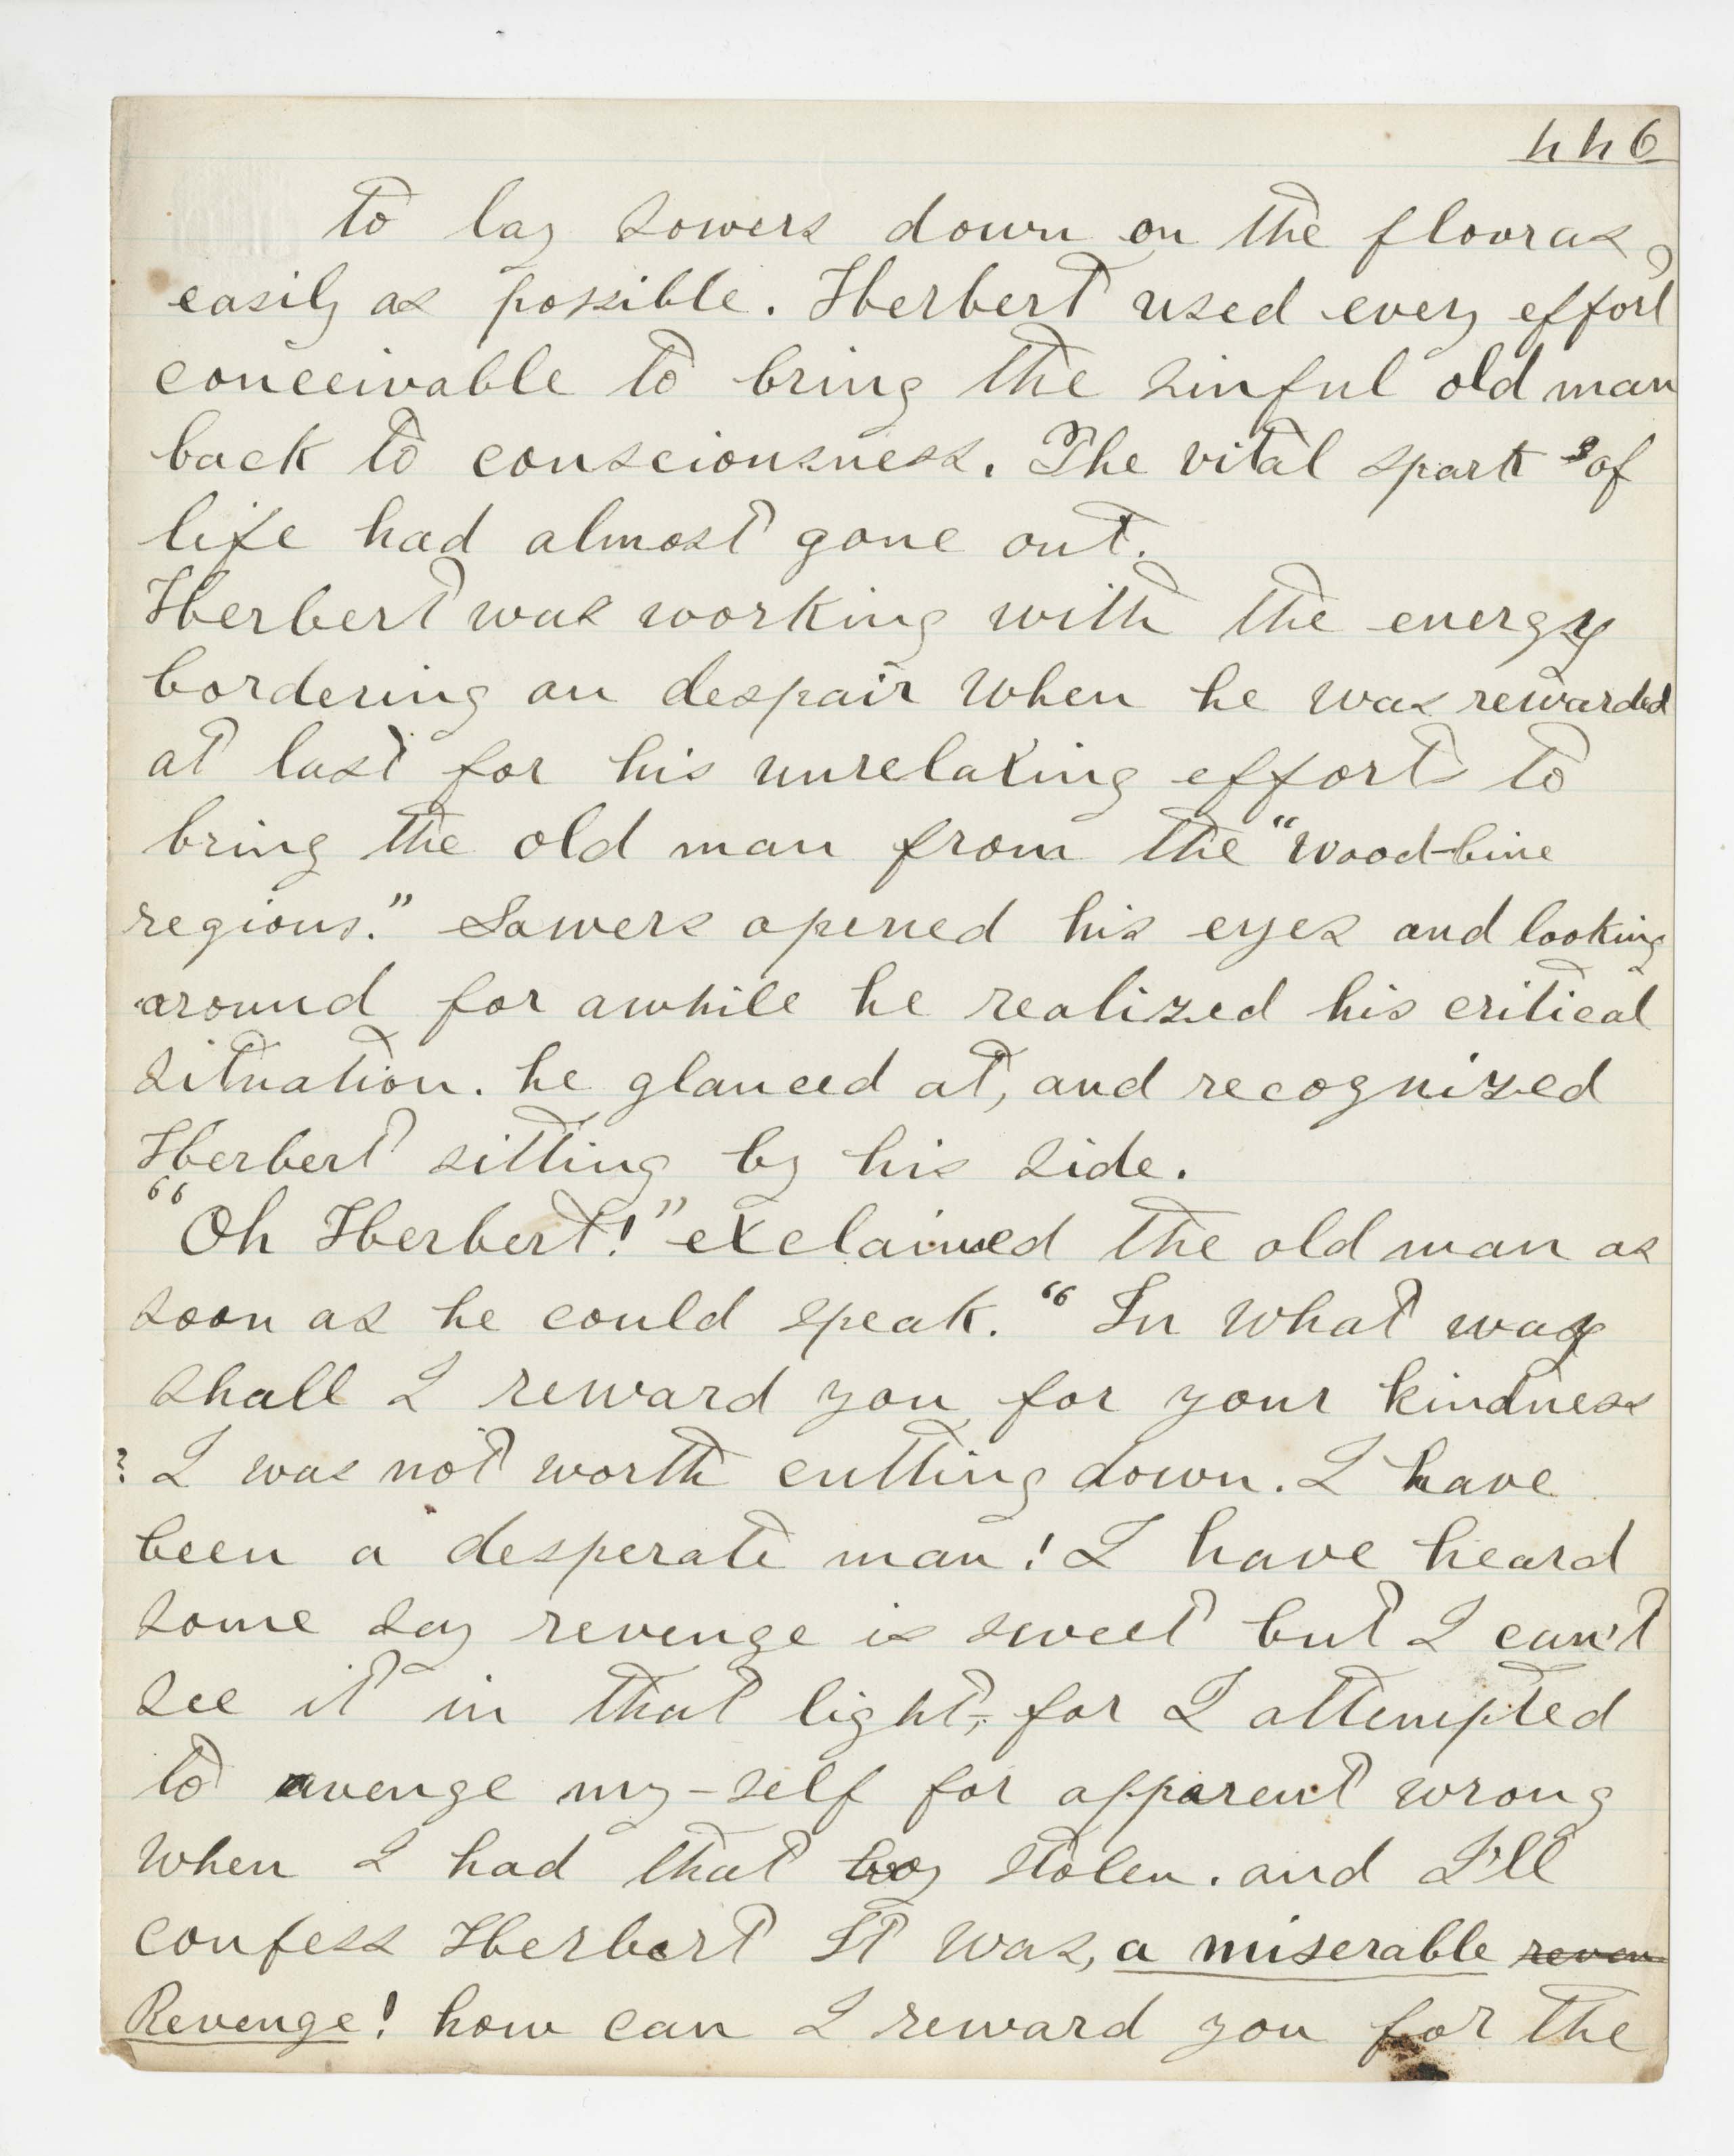 446
to lay Sowers down on the floor as
easily as possible. Herbert used every effort
conceivable to bring the sinful old man
back to consciousness. The vital spark of
life had almost gone out.
Herbert was working with the energy
bordering on despair when he was rewarded
at last for his unrelaxing efforts to
bring the old man from the "Wood-bine
regions." Sowers opened his eyes and looking
around for awhile he realized his critical
situation. he glanced at, and recognized
Herbert sitting by his side.
"Oh Herbert!" exclaimed the old man as
soon as he could speak. "In what way
shall I reward you for your kindness
? I was not worth cutting down. I have
been a desperate man! I have heard
some say revenge is sweet but I can't
see it in that light, for I attempted
to avenge my-self for apparent wrong
when I had that boy stolen. and I'll
confess Herbert It was, a miserable reven
Revenge! how can I reward you for the